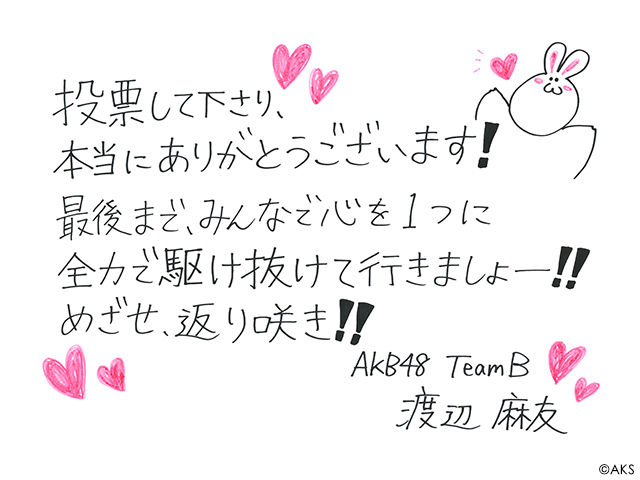 投票して下さり、
本当にありがとうございます!
最後まで、みんなで心を1つに
全力で駆け抜けて行きましょー!!
めざせ、返り咲き!!
AKB48 TeamB
渡辺 麻友
©AKS